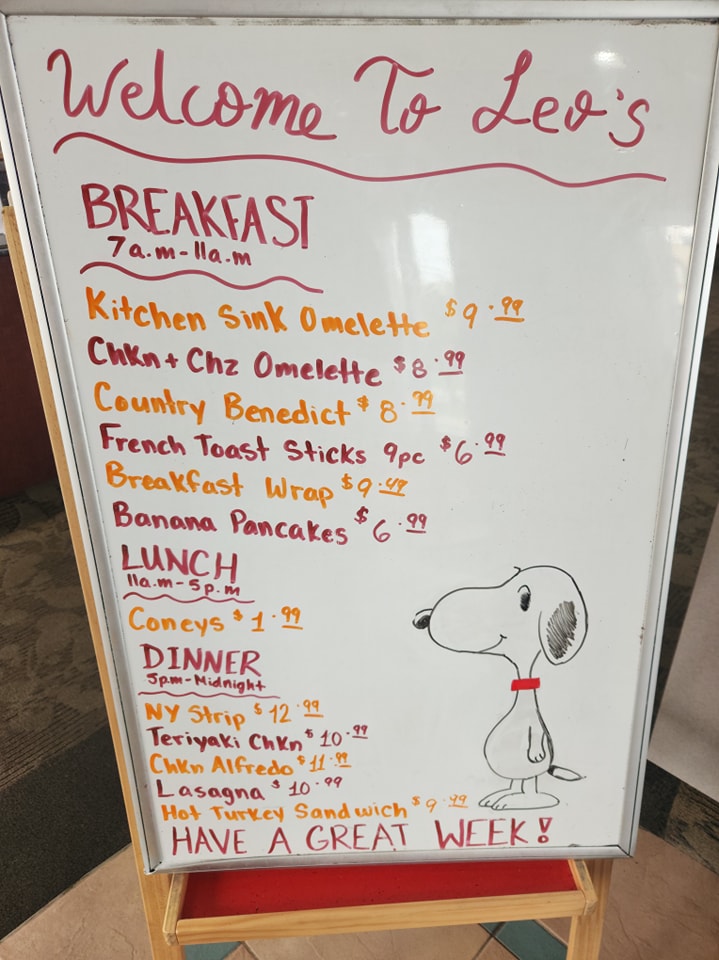 Welcome To Leo's
BREAKFAST
7a.m-11a.m
Kitchen Sink Omelette $9.99
Chkn + Chz Omelette $8.99
Country Benedict $8.99
French Toast Sticks 9pc $6.99
Breakfast Wrap $9.49
Banana Pancakes $6.99
LUNCH
11a.m-5p.m
Coneys $1.99
DINNER
5p.m-Midnight
NY Strip $12.99
Teriyaki Chkn $10.99
Chkn Alfredo $11.99
Lasagna $10.99
Hot Turkey Sandwich $9.49
HAVE A GREAT WEEK!